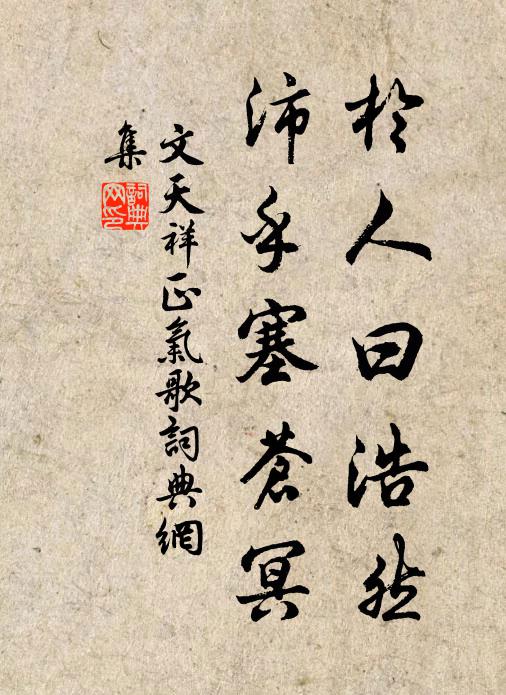 於人曰浩然
沛乎塞蒼冥
文天祥正氣歌詞典網
集
詞典
网印